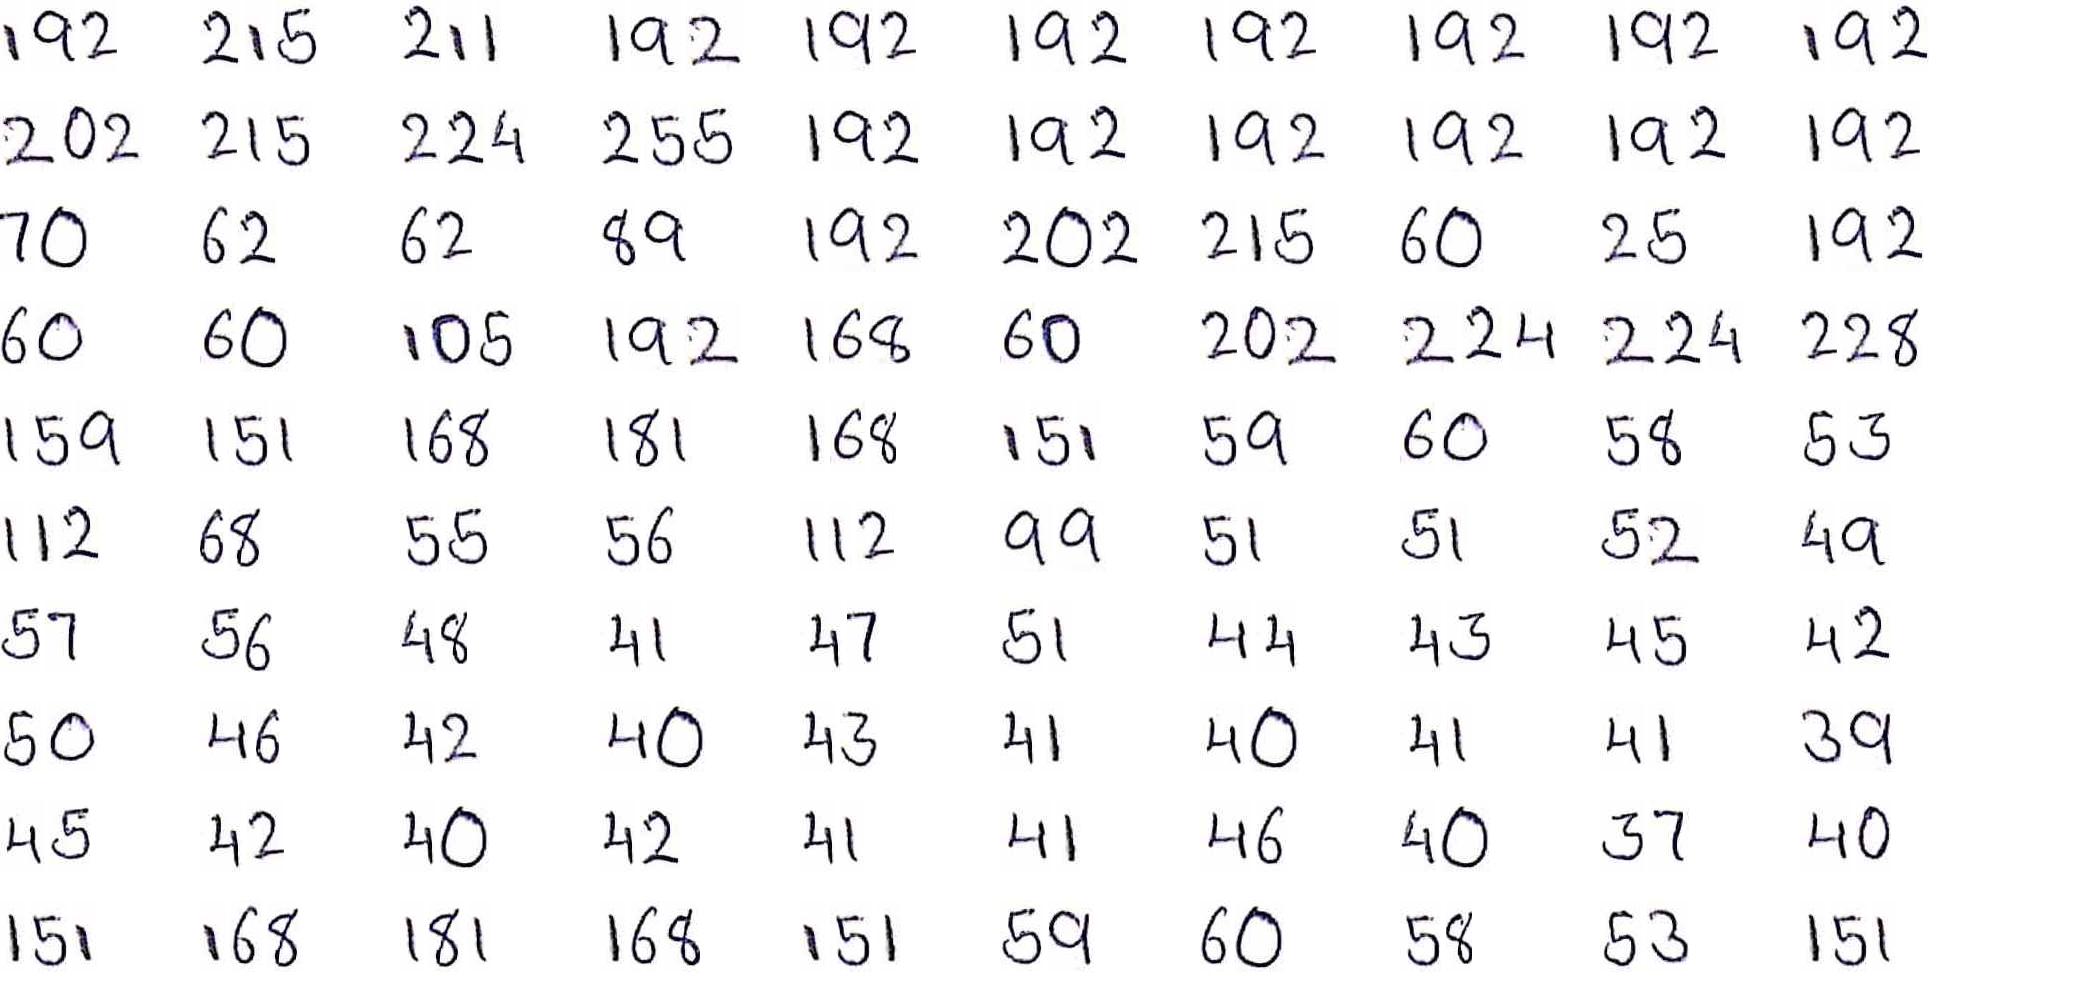 192 215 211 192 192 192 192 192 192 192
202 215 224 255 192 192 192 192 192 192
70 62 62 89 192 202 215 60 25 192
60 60 105 192 168 60 202 224 224 228
159 151 168 181 168 151 59 60 58 53
112 68 55 56 112 99 51 51 52 49
57 56 48 41 47 51 44 43 45 42
50 46 42 40 43 41 40 41 41 39
45 42 40 42 41 41 46 40 37 40
151 168 181 168 151 59 60 58 53 151